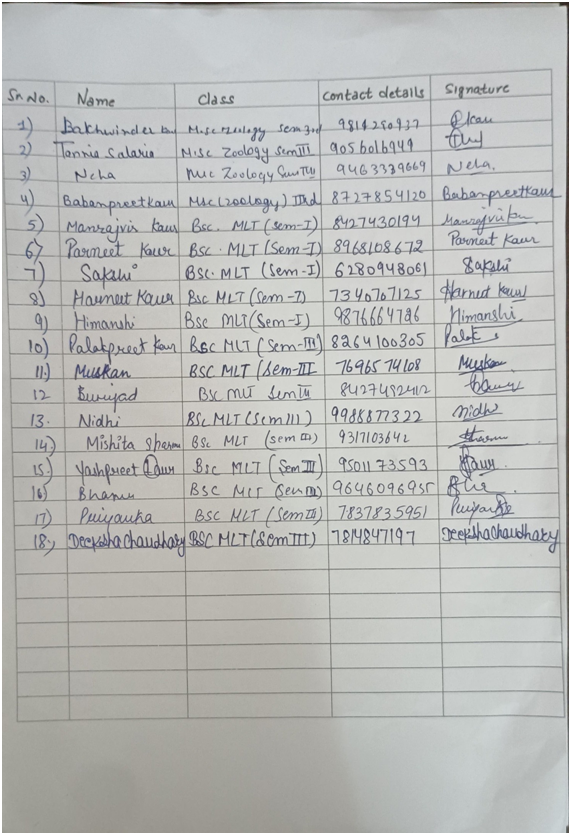 Sr. No. Name Class Contact details Signature
1) Bakhwinder Kau M.sc Zoology sem 3rd 9814250937 Pkau
2) Tannia Salaria M.Sc Zoology Sem III 9056016949
3) Neha Msc Zoology Sem III 9463339669 Neha
4) Babanpreet kaur Msc (zoology) IIIrd 8727854120 Babanpreetkaur
5) Manrajvir Kaur Bsc. MLT (sem-I) 8427430194 Manrajvirkau
6) Parneet Kaur BSC. MLT (Sem-I) 8968108672 Parneet Kaur
7) Sakshi BSC. MLT (Sem-I) 6280948061 Sakshi
8) Harneet Kaur Bsc MLT (Sem-I) 7340707125 Harneet Kaur
9) Himanshi Bsc MLT (Sem-I) 9876664786 Himanshi
10) Palakpreet Kaur BSC MLT (Sem-III) 8264100305 Palak
11) Muskan BSC MLT (Sem-III 7696574108 Muskan
12 BSC MLT Sem III 8427492412
13. Nidhi BSC MLT (Sem III) 9988877322 Nidhi
14) Mishita Sharma BSC MLT (sem III) 9317103642 Sharma
15. Yashpreet Kaur BSC MLT (Sem III) 9501173593 Kaur.
16) Bhanu BSC MLT (Sem III) 9646096955
17) Priyanka BSC MLT (Sem III) 7837835951 Priyanka
18.) Deeksha Chaudhary BSC MLT (Sem III) 7814847197 Deeksha Chaudhary